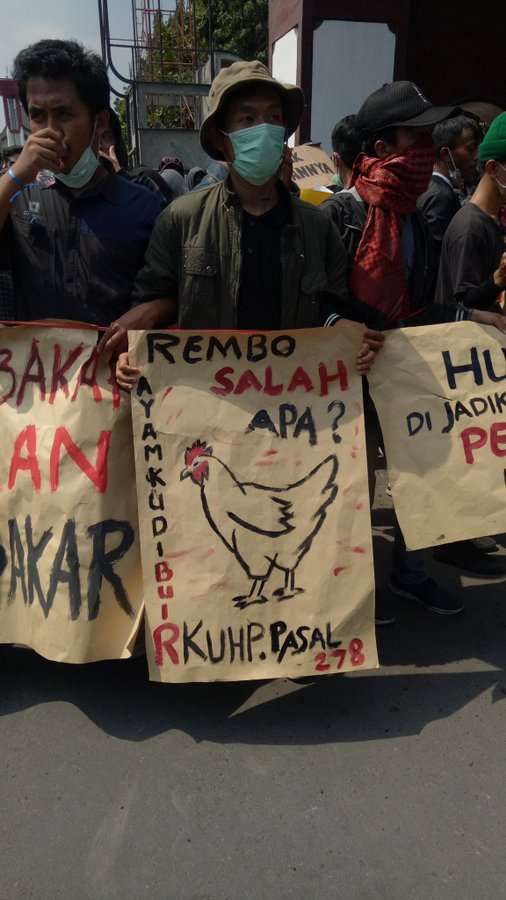 BAKAR
AN
PAKAR
REMBO
SALAH
APA?
AYAMKUDIBUI
RKUHP. PASAL
278
HU
DI JADIK
PE